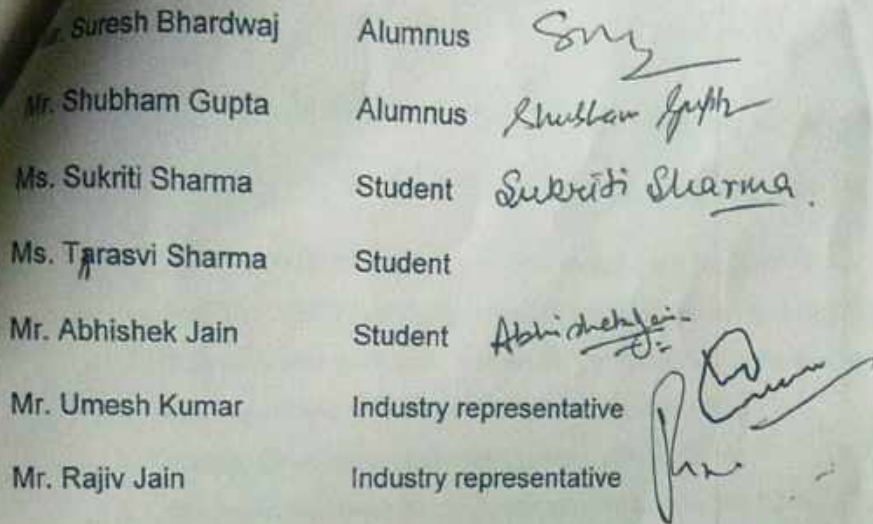 Mr. Suresh Bhardwaj Alumnus
Mr. Shubham Gupta Alumnus Shubham Gupta
Ms. Sukriti Sharma Student Sukriti Sharma.
Ms. Tarasvi Sharma Student
Mr. Abhishek Jain Student Abhishek Jain
Mr. Umesh Kumar Industry representative
Mr. Rajiv Jain Industry representative